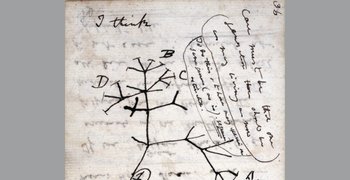 I think
36
Case must be that one
generation then should be
as many living as now
To do this & to have many species in
same genus (as is) requires
extinction
B
C
D
A